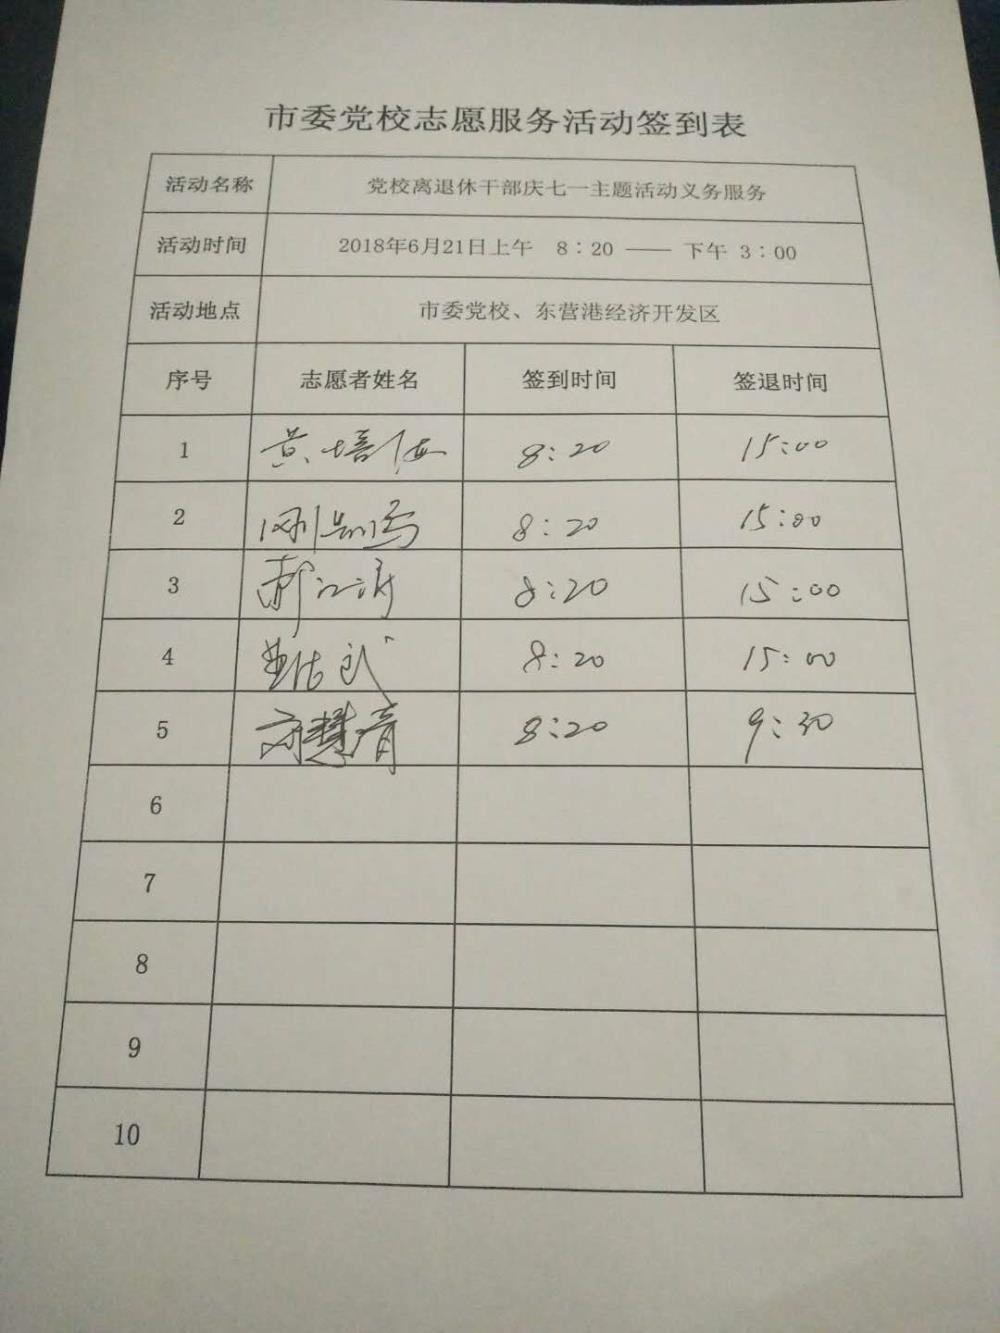 市委党校志愿服务活动签到表
活动名称 党校离退休干部庆七一主题活动义务服务
活动时间 2018年6月21日上午 8：20 —— 下午 3：00
活动地点 市委党校、东营港经济开发区
序号 志愿者姓名 签到时间 签退时间
1 黄培 8:20 15:00
2 8:20 15:00
3 郝江涛 8:20 15:00
4 8:20 15:00
5 慧青 8:20 9:30
6
7
8
9
10